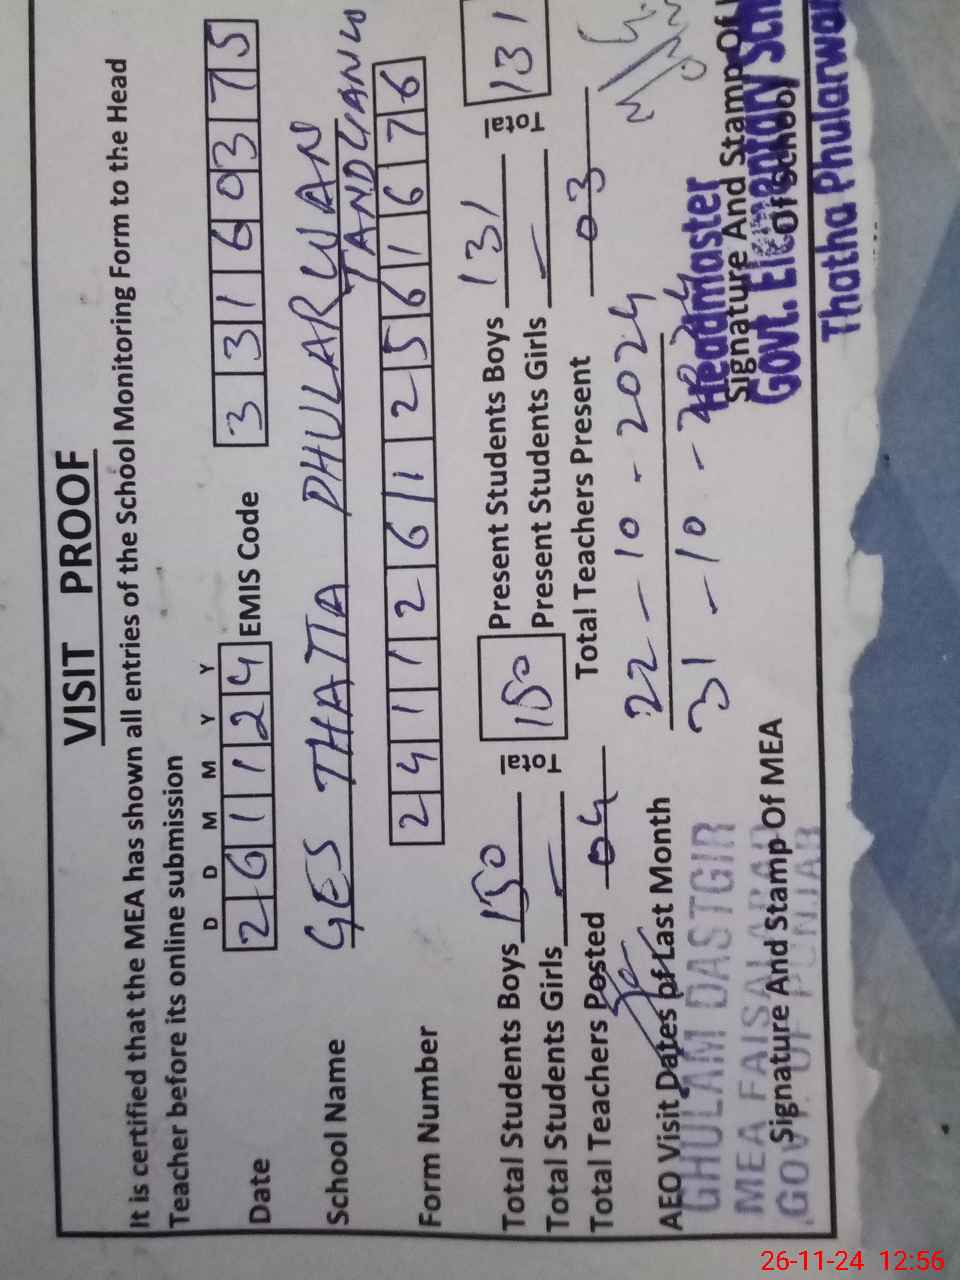 VISIT PROOF
It is certified that the MEA has shown all entries of the School Monitoring Form to the Head
Teacher before its online submission
D D M M Y Y
Date 261124 EMIS Code 33160375
School Name GES THATTA PHULARWAN
TANDLIANWA
Form Number 24112612561676
Total Students Boys 150 Total 150 Present Students Boys 131 Total 131
Total Students Girls — Present Students Girls —
Total Teachers Posted 04 Total Teachers Present 03
AEO Visit Dates of Last Month 22-10-2024
31-10-2024
GHULAM DASTGIR
MEA FAISALABAD
GOVT. OF PUNJAB
Signature And Stamp Of MEA
Signature And Stamp Of
Of School
Headmaster
Govt. Elementary Sch
Thatha Phularwa
26-11-24 12:56